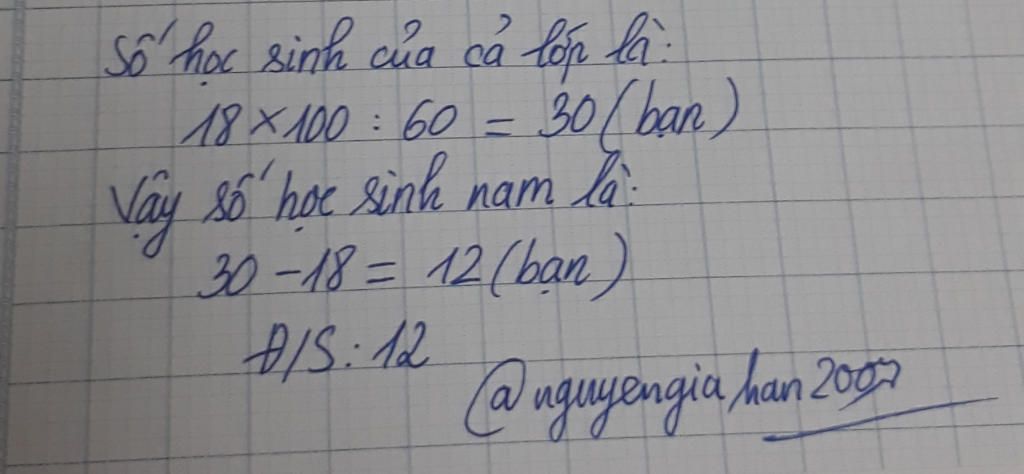 Số học sinh của cả lớp là:
18 × 100 : 60 = 30 (bạn)
Vậy số học sinh nam là:
30 - 18 = 12 (bạn)
Đ/S: 12
@nguyengiahan2007